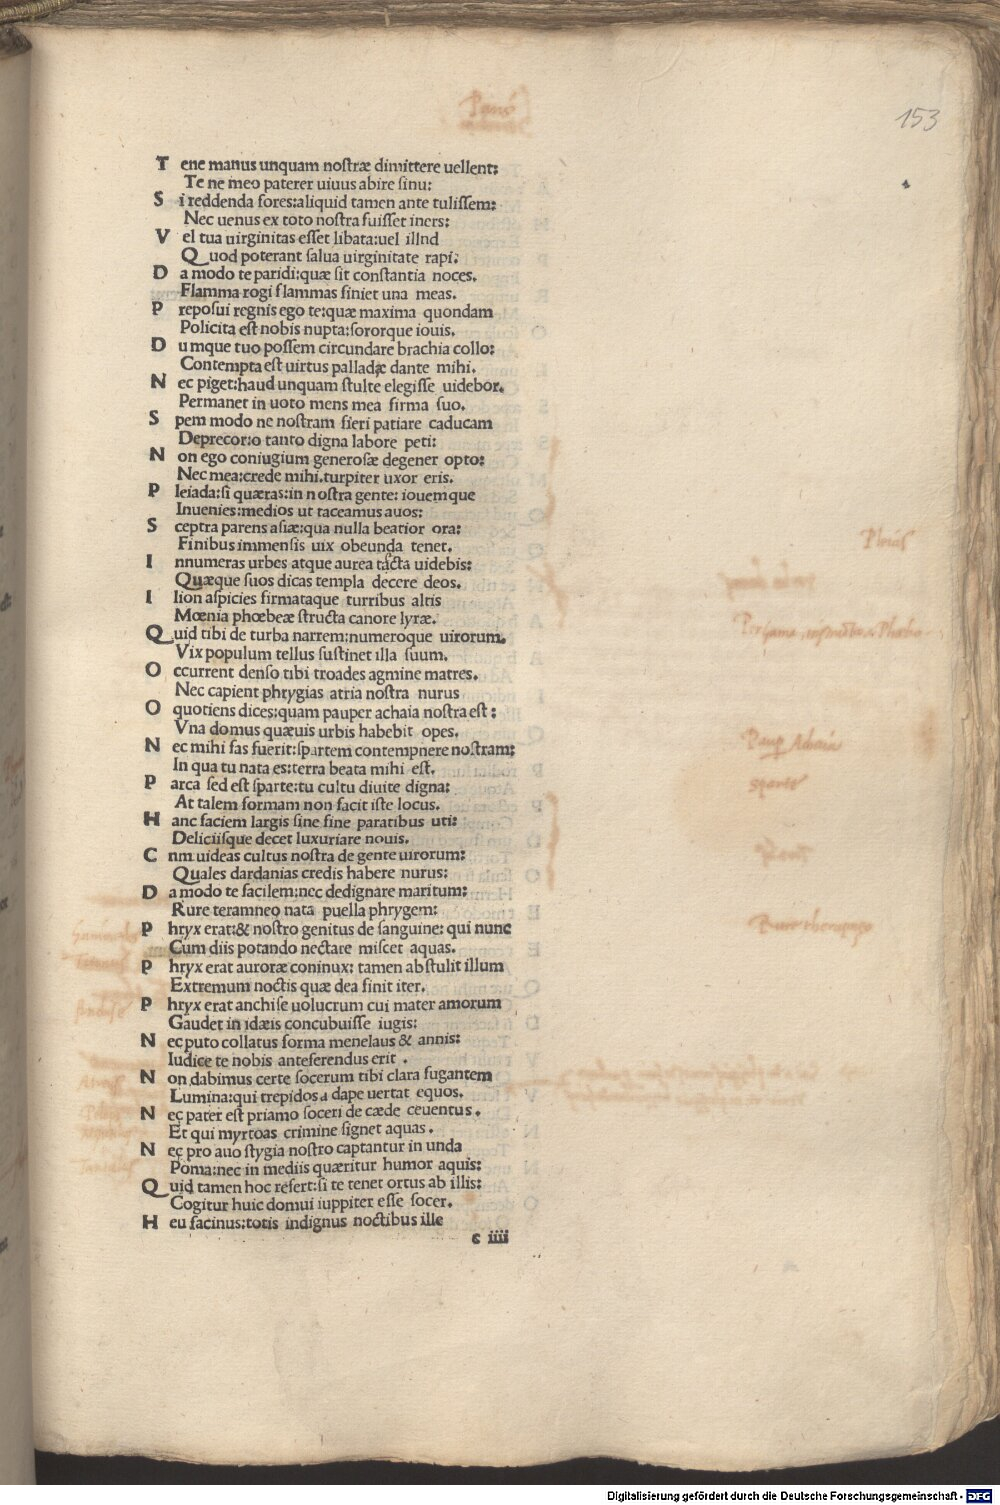 153
T ene manus unquam nostræ dimittere uellent:
Te ne meo paterer uiuus abire sinu:
S i reddenda fores:aliquid tamen ante tulissem:
Nec uenus ex toto nostra fuisset iners:
V el tua uirginitas esset libata:uel illnd
Quod poterant salua uirginitate rapi:
D a modo te paridi:quæ sit constantia noces.
Flamma rogi flammas finiet una meas.
P reposui regnis ego te:quæ maxima quondam
Policita est nobis nupta:sororque iouis.
D umque tuo possem circundare brachia collo:
Contempta est uirtus palladæ dante mihi.
N ec piget:haud unquam stulte elegisse uidebor.
Permanet in uoto mens mea firma suo.
S pem modo ne nostram fieri patiare caducam
Deprecor:o tanto digna labore peti:
N on ego coniugium generosæ degener opto:
Nec mea:crede mihi.turpiter uxor eris.
P leiada:si quæras:in nostra gente: iouemque
Inuenies:medios ut taceamus auos:
S ceptra parens asiæ:qua nulla beatior ora:
Finibus immensis uix obeunda tenet.
I nnumeras urbes atque aurea tacta uidebis:
Quæque suos dicas templa decere deos.
I lion aspicies firmataque turribus altis
Mœnia phœbeæ structa canore lyræ.
Q uid tibi de turba narrem:numeroque uirorum.
Vix populum tellus sustinet illa suum.
O ccurrent denso tibi troades agmine matres.
Nec capient phrygias atria nostra nurus
O quotiens dices:quam pauper achaia nostra est:
Vna domus quæuis urbis habebit opes.
N ec mihi fas fuerit:spartem contempnere nostram:
In qua tu nata es:terra beata mihi est.
P arca sed est sparte:tu cultu diuite digna:
At talem formam non facit iste locus.
H anc faciem largis sine fine paratibus uti:
Deliciisque decet luxuriare nouis.
C nm uideas cultus nostra de gente uirorum:
Quales dardanias credis habere nurus:
D a modo te facilem:nec dedignare maritum:
Rure teramneo nata puella phrygem:
P hryx erat:& nostro genitus de sanguine: qui nunc
Cum diis potando nectare miscet aquas.
P hryx erat auroræ coninux: tamen abstulit illum
Extremum noctis quæ dea finit iter.
P hryx erat anchise uolucrum cui mater amorum
Gaudet in idæis concubuisse iugis:
N ec puto collatus forma menelaus & annis:
Iudice te nobis anteferendus erit .
N on dabimus certe socerum tibi clara fugantem
Lumina:qui trepidos a dape uertat equos.
N ec pater est priamo soceri de cæde ceuentus.
Et qui myrtoas crimine signet aquas .
N ec pro auo stygia nostro captantur in unda
Poma:nec in mediis quæritur humor aquis:
Q uid tamen hoc refert:si te tenet ortus ab illis:
Cogitur huic domui iuppiter esse socer.
H eu facinus:totis indignus noctibus ille
c iiii
Digitalisierung gefördert durch die Deutsche Forschungsgemeinschaft - DFG